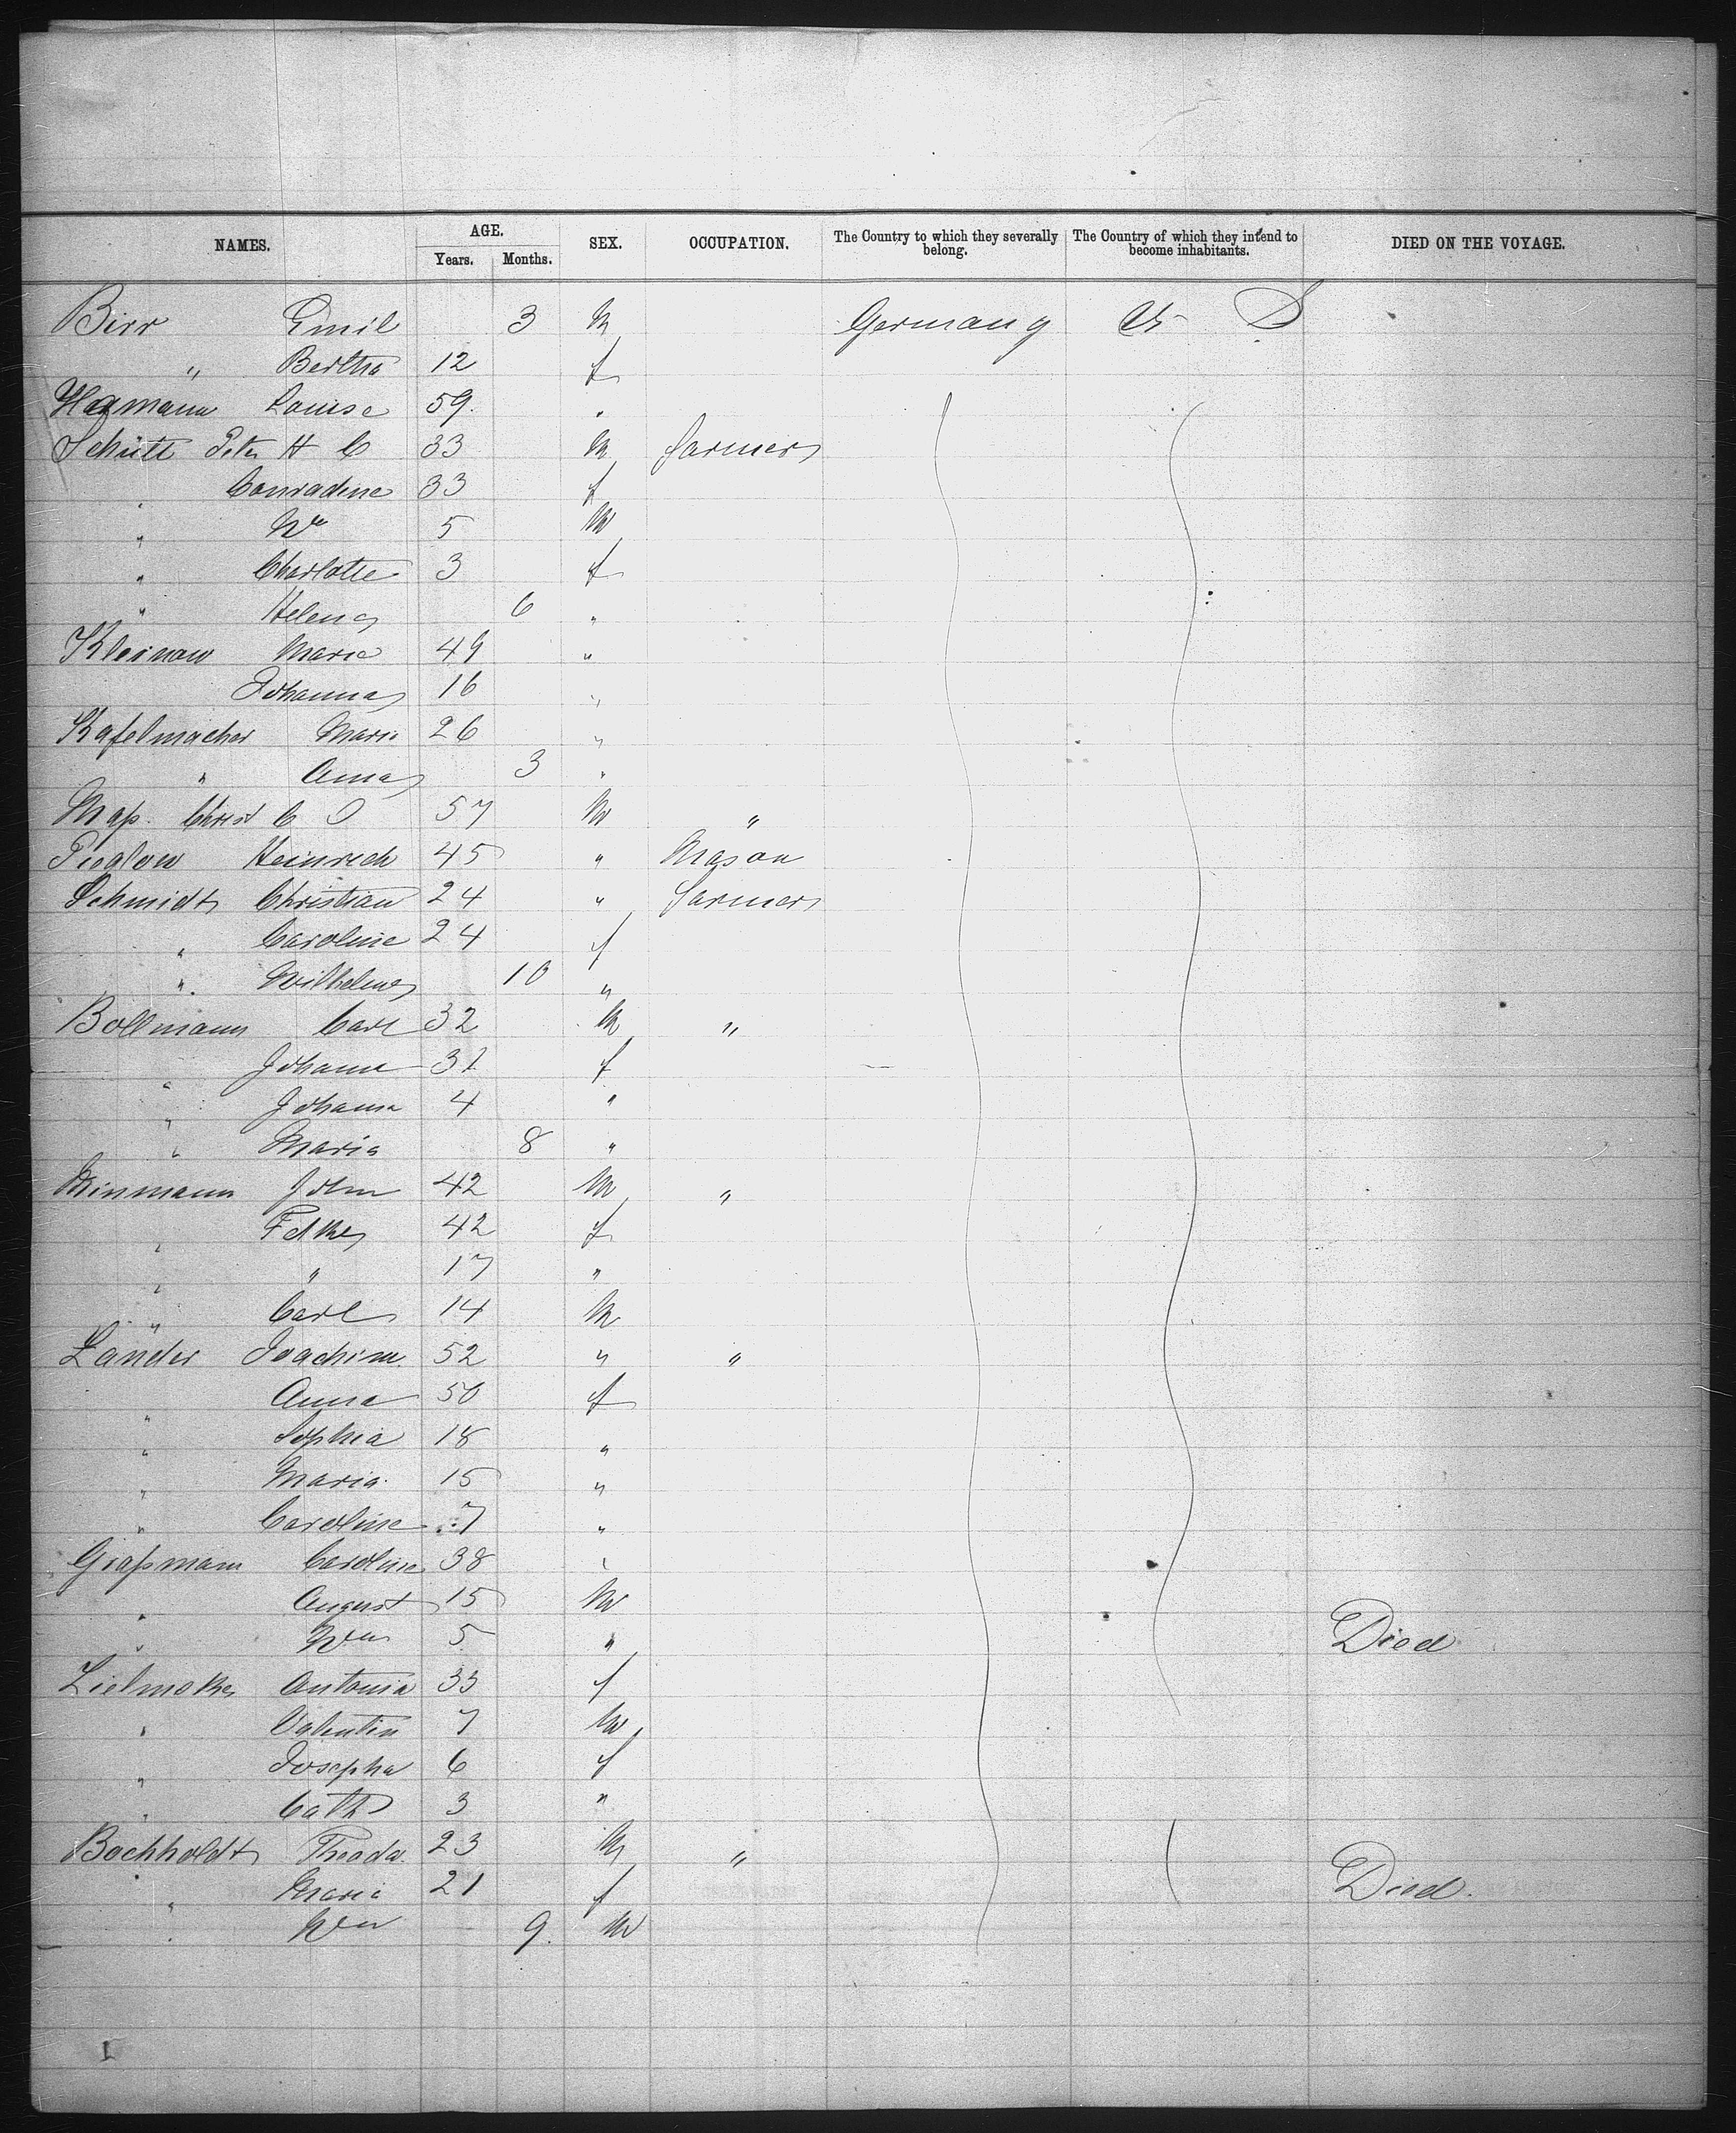 NAMES. AGE. SEX. OCCUPATION. The Country to which they severally belong. The Country of which they intend to become inhabitants. DIED ON THE VOYAGE.
Years. Months.
Birr Emil 3 M Germany U S
" Bertha 12 f
Hagmann Louise 59. "
Schütt Peter H C 33 M farmer
" Conradine 33 f
" Wm 5 M
" Charlotte 3 f
" Helena 6 "
Kleinow Marie 49 "
Johanna 16 "
Kafelmacher Maria 26 "
" Anna 3 "
Maß. Christ C O 57 M "
Heinrich 45 " Mason
Schmidt Christian 24 " farmer
" Caroline 24 f
" Wilhelme 10 "
Bollmann Carl 32 M "
" Johanna 31 f
" Johanna 4 "
" Maria 8 "
Minmann John 42 M "
" Fdke 42 f
" " 17 "
" Carl 14 M
Länder Joachim 52 " "
" Anna 50 f
" Sophia 18 "
" Maria 15 "
" Caroline 7 "
Graßmann Caroline 38 "
" August 15 M
" Wm 5 " Died
Antonia 33 f
" Valentin 7 M
" Josepha 6 f
" Cath 3 "
Bochholdt Theodor 23 M "
" Maria 21 f Died.
" Wm 9. M